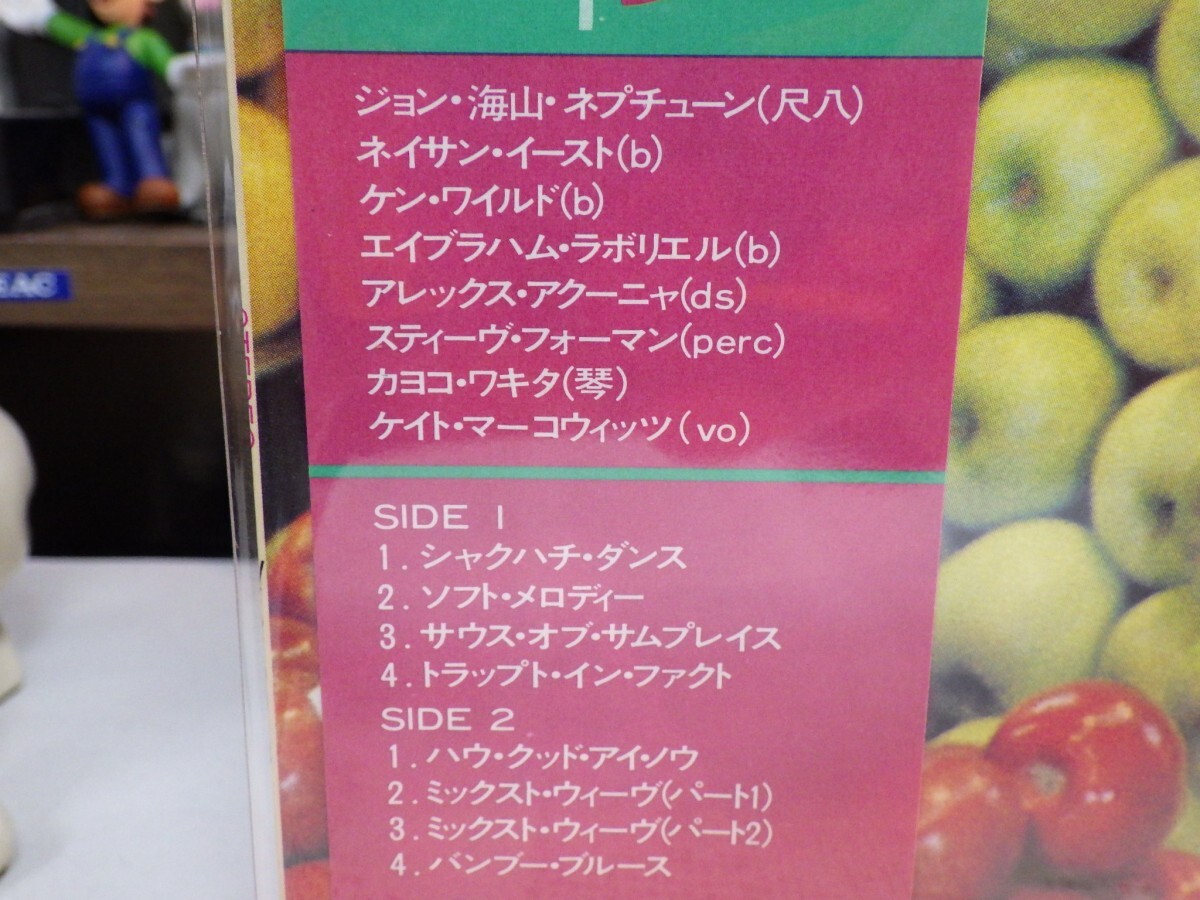 ジョン・海山・ネプチューン(尺八)
ネイサン・イースト(b)
ケン・ワイルド(b)
エイブラハム・ラボリエル(b)
アレックス・アクーニャ(ds)
スティーヴ・フォーマン(perc)
カヨコ・ワキタ(琴)
ケイト・マーコウィッツ(vo)
SIDE 1
1.シャクハチ・ダンス
2.ソフト・メロディー
3.サウス・オブ・サムプレイス
4.トラップト・イン・ファクト
SIDE 2
1.ハウ・クッド・アイ・ノウ
2.ミックスト・ウィーヴ(パート1)
3.ミックスト・ウィーヴ(パート2)
4.バンブー・ブルース